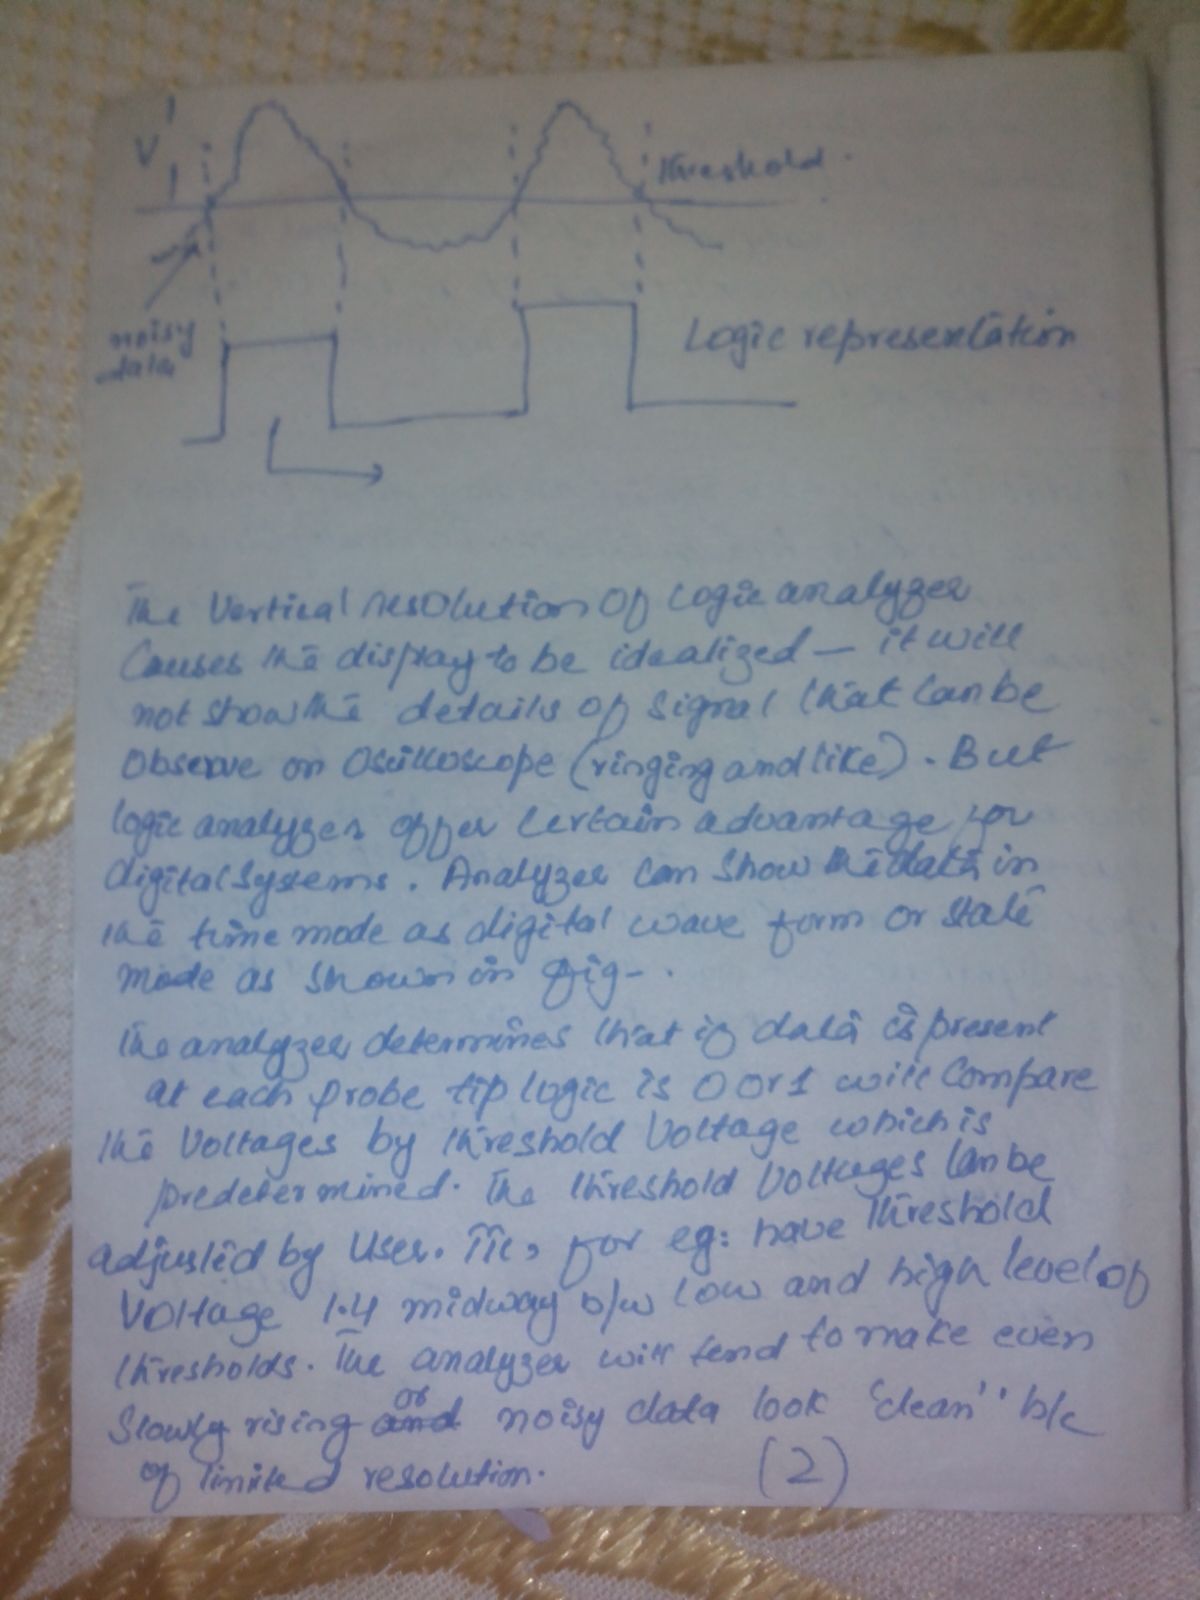 V
threshold.
noisy
data
Logic representation
The Vertical resolution of Logic analyzer
Causes the display to be idealized — it will
not show the details of signal that can be
observe on Oscilloscope (ringing and like). But
logic analyzer offer certain advantage for
digital systems. Analyzer can show the data in
the time mode as digital wave form or state
mode as shown in fig-.
The analyzer determines that if data is present
at each probe tip logic is 0 or 1 will compare
the voltages by threshold voltage which is
predetermined. The threshold voltages can be
adjusted by User. TTL, for eg: have threshold
voltage 1.4 midway b/w low and high level of
thresholds. The analyzer will tend to make even
slowly rising or noisy data look "clean" b/c
of limited resolution.
(2)